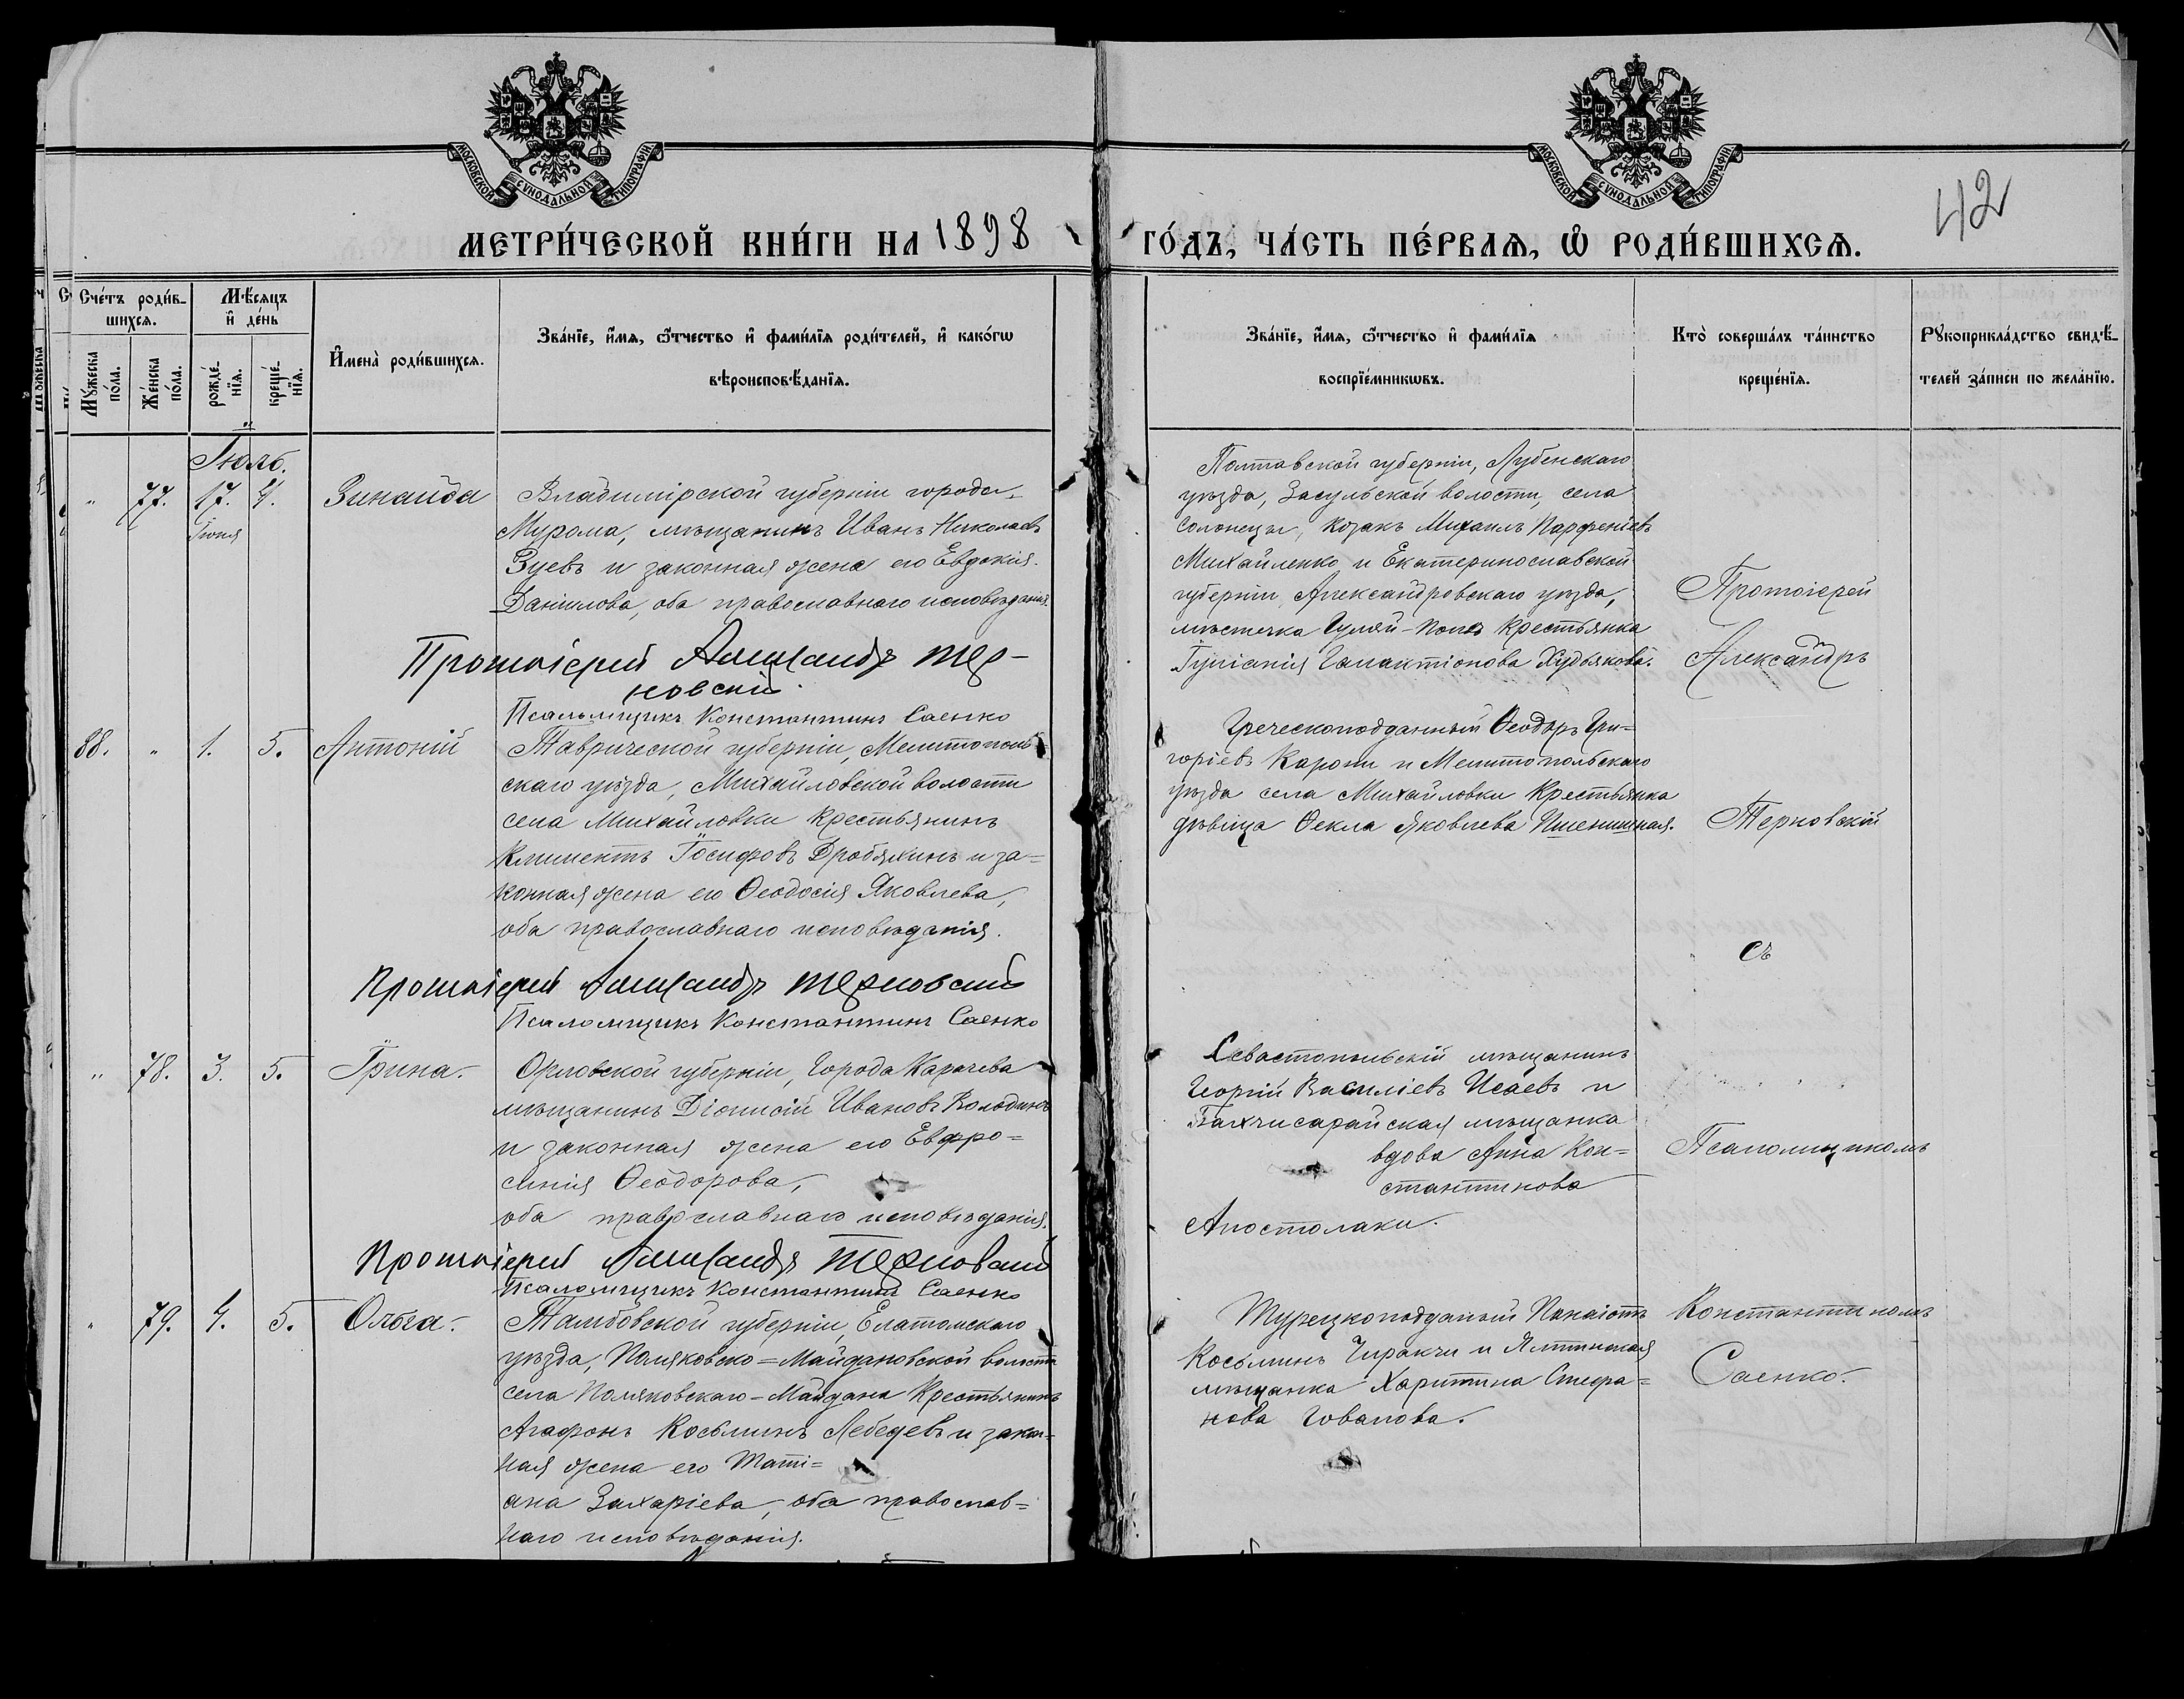 МОСКОВСКОЙ СѴНОДАЛЬНОЙ ТИПОГРАФІИ
МОСКОВСКОЙ СѴНОДАЛЬНОЙ ТИПОГРАФІИ
42
МЕТРИ́ЧЕСКОЙ КНИ́ГИ НА 1898 ГО́ДЪ, ЧА́СТЬ ПЕ́РВАѦ, Ѡ РОДИ́ВШИХСѦ.
Сче́тъ роди́в-
шихсѧ.
Мѣ́сѧцъ
и де́нь
Мꙋ́жеска по́ла.
Же́нска по́ла.
рожде́нїѧ.
креще́нїѧ.
Имена̀ роди́вшихсѧ.
Зва́нїе, и́мѧ, ѻ́тчество и фами́лїѧ роди́телей, и како́гѡ
вѣроисповѣ́данїѧ.
Зва́нїе, и́мѧ, ѻ́тчество и фами́лїѧ
воспрїе́мникѡвъ.
Кто̀ соверша́лъ та́инство
креще́нїѧ.
Рꙋкоприкла́дство свидѣ́-
телей за́писи по жела́нїю.
Іюль.
" 77. 17. 4. Зинаида
Іюня
Владимірской губерніи города
Мурома, мѣщанинъ Иванъ Николаевъ
Зуевъ и законная жена его Евдокія
Даніилова, оба православнаго исповѣданія.
Протоіерей Александръ Тер-
новскій
Псаломщикъ Константинъ Саенко
Полтавской губерніи, Лубенскаго
уѣзда, Засульской волости, села
Солонецы, козакъ Михаилъ Парфеніевъ
Михайленко и Екатеринославской
губерніи Александровскаго уѣзда,
мѣстечка Гуляй-Поле крестьянка
Іуліанія Галактіонова Худякова.
Протоіерей
Александръ
88. " 1. 5. Антоній
Таврической губерніи, Мелитополь-
скаго уѣзда, Михайловской волости
села Михайловки крестьянинъ
Климентъ Іосифовъ Дробязинъ и за=
конная жена его Ѳеодосія Яковлева,
оба православнаго исповѣданія.
Протоіерей Александръ Терновскій
Псаломщикъ Константинъ Саенко
Греческоподданный Ѳеодоръ Гри=
горіевъ Кароли и Мелитопольскаго
уѣзда села Михайловки крестьянка
дѣвица Ѳекла Яковлева Пшеничная.
Терновскій
съ
" 78. 3. 5. Ірина.
Орловской губерніи, города Карачева
мѣщанинъ Діонисій Ивановъ Володинъ
и законная жена его Евфро=
синія Ѳеодорова,
оба православнаго исповѣданія.
Протоіерей Александръ Терновскій
Псаломщикъ Константинъ Саенко
Севастопольскій мѣщанинъ
Георгій Василіевъ Исаевъ и
Бахчисарайская мѣщанка
вдова Анна Кон=
стантинова
Апостолаки.
Псаломщикомъ
" 79. 4. 5. Ольга.
Тамбовской губерніи, Елатомскаго
уѣзда, Поляковско=Майдановской волости
села Поляковскаго-Майдана крестьянинъ
Агафонъ Косьминъ Лебедевъ и закон=
ная жена его Таті=
ана Захаріева, оба православ=
наго исповѣданія.
Турецкоподданый Панаіотъ
Косьминъ Чиракчи и Ялтинская
мѣщанка Харитина Стефа=
нова
Константиномъ
Саенко.